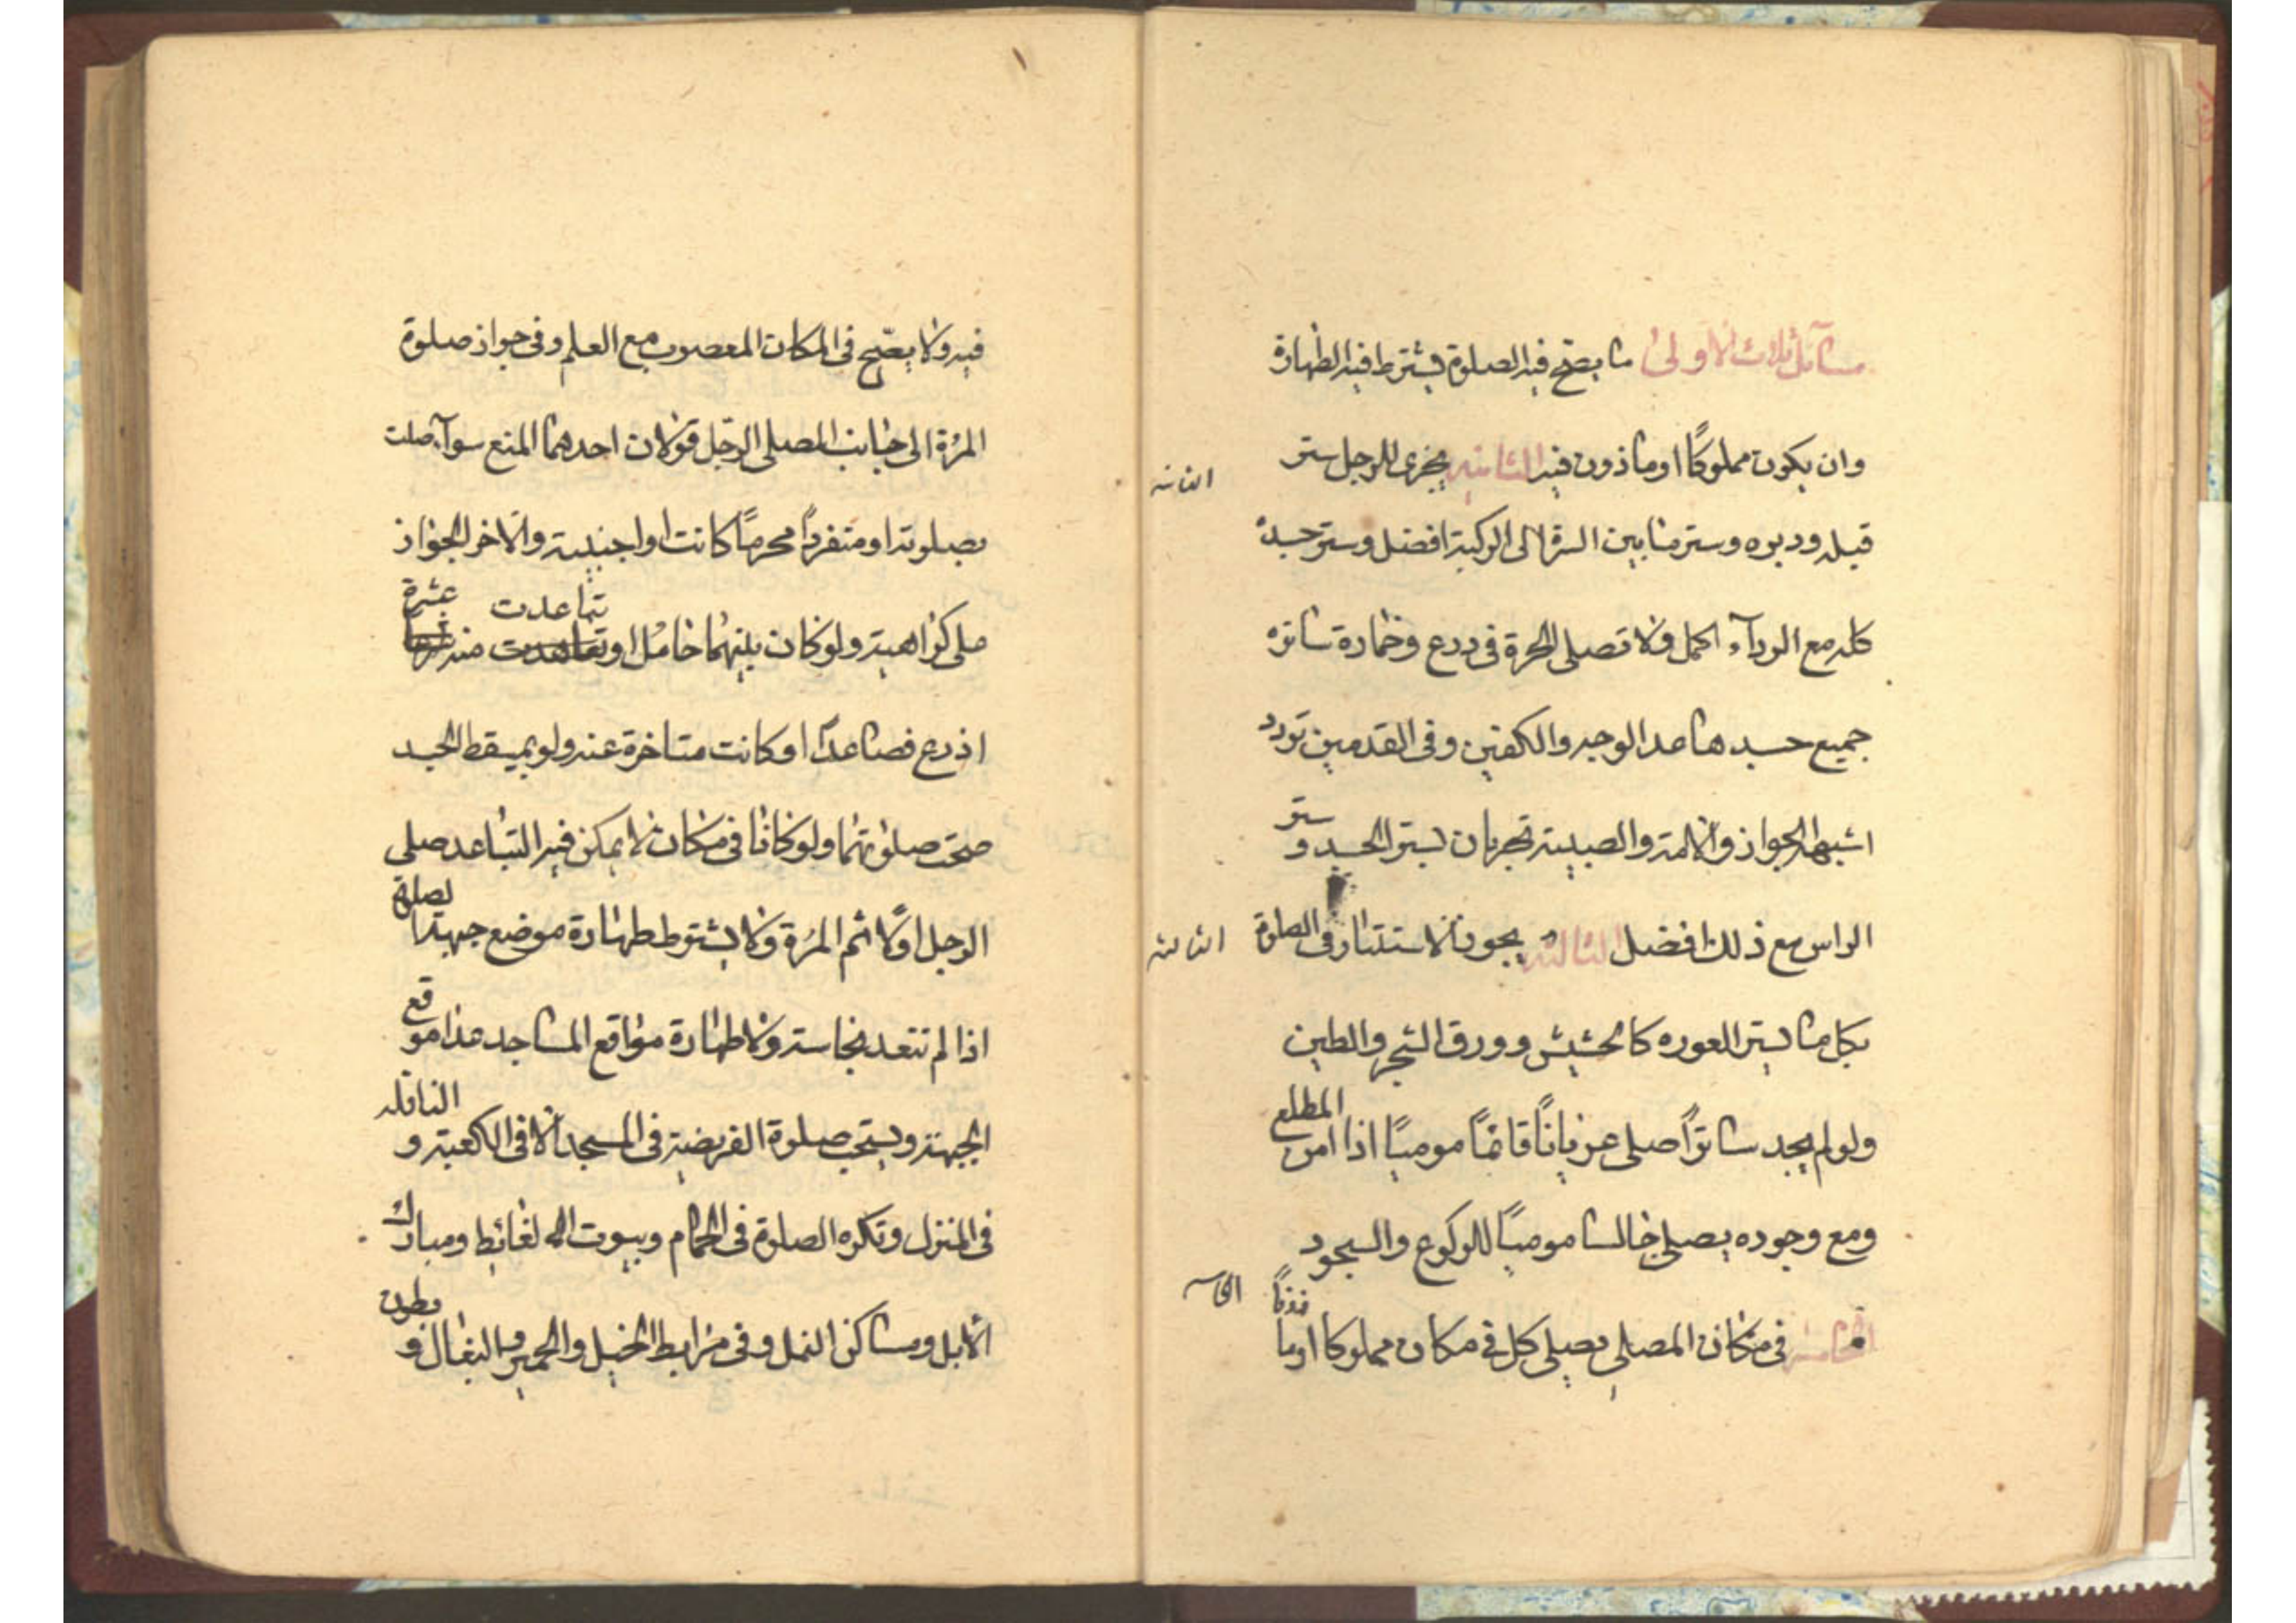 مسآئل ثلاث الاولى ما يصح فيه الصلوة يشترط فيه الطهارة
وان يكون مملوكًا او ماذون فيه الثانيه يجزى للرجل ستر
الثانيه
قبله ودبره وستر ما بين السرة الى الركبة افضل وستر جسده
كله مع الردآء اكمل ولا تصلى الحرة فى درع وخمارة ساتره
جميع جسدها عدا الوجه والكفين وفى القدمين تردد
اشبهه الجواز والامة والصبية تجزيان بستر الجسد و ستر
الراس مع ذلك افضل الثالثه يجوز الاستتار فى الصلوة
الثالثه
بكل ما يستر العوره كالحشيش وورق الشجر والطين
ولو لم يجد ساترًا صلى عريانًا قائمًا موميًا اذا امن المطلع
ومع وجوده يصلى جالسا موميًا للركوع والسجود
الخامسه فى مكان المصلى يصلى كل فى مكان مملوكا او ماذونًا
الخامسه
فيه ولا يصّح فى المكان المغصوب مع العلم وفى جواز صلوة
المرٔة الى جانب المصلى الرجل قولان احدهما المنع سوآء صلت
بصلوته او متفردًا محرمًا كانت او اجنبية والاخر الجواز
على كراهية ولو كان بينهما حامل او تباعدت منه عشرة
اذرع فصاعدًا او كانت متاخرة عنه ولو بمسقط الجسد
صحت صلوتهما ولو كانا فى مكان لا يمكن فيه التباعد صلى
الرجل اولًا ثم المرٔة ولا يشترط طهارة موضع جبهة
اذا لم تتعد نجاسته ولا طهارة مواقع المساجد عدا موقع
الجبهة ويستحب صلوة الفريضة فى المسجد الا فى الكعبة و النافله
فى المنزل وتكره الصلوة فى الحمام وبيوت الغائط ومبارك
الابل ومساكن النمل وفى مرابط الخيل والحمير والبغال و بطون